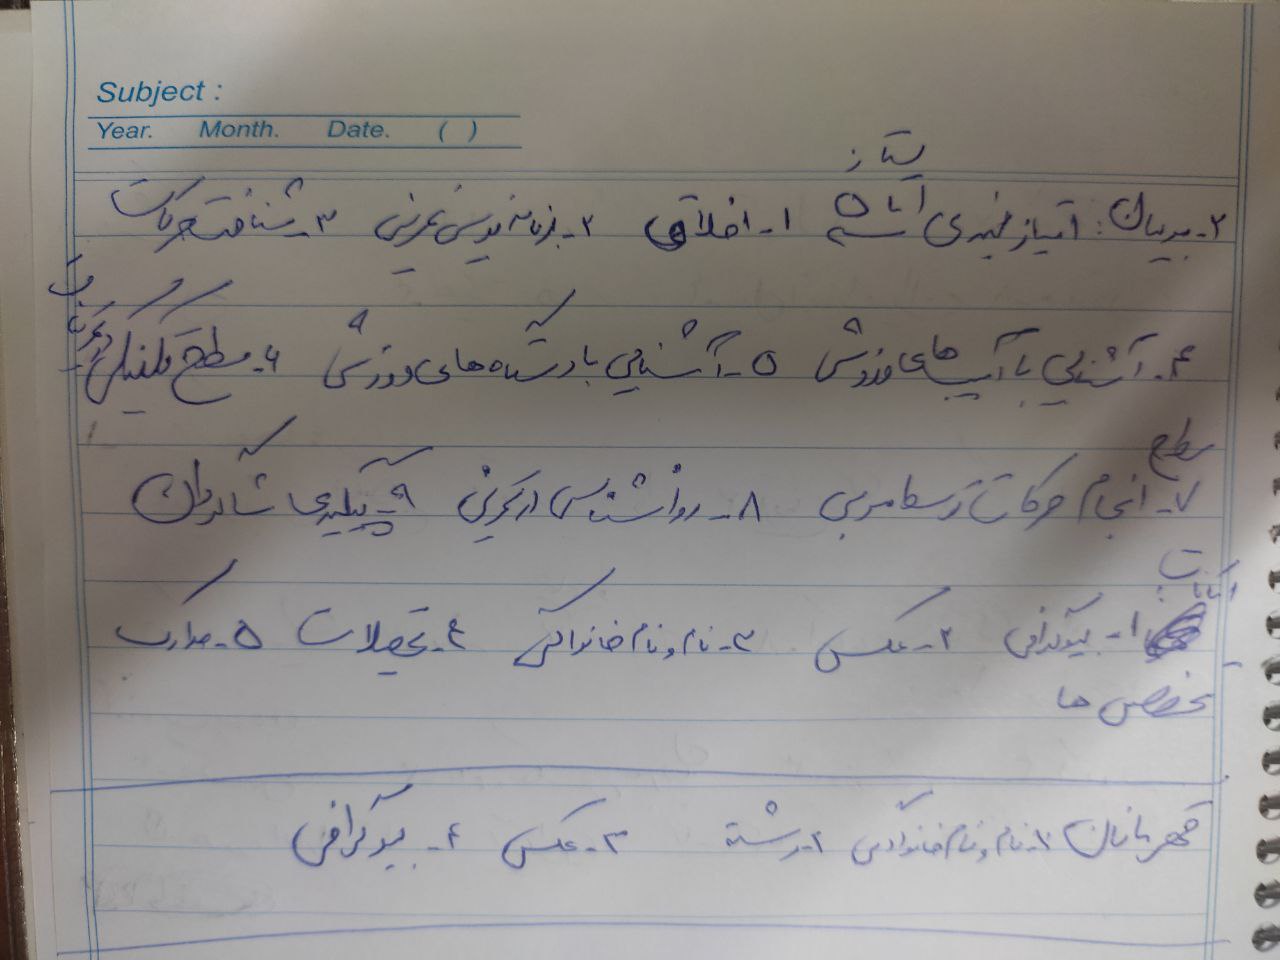 Subject :
Year. Month. Date. ( )
ستاره
۲- مربیان: امتیاز بندی ۱ تا ۵ ۱- اخلاق ۲- برنامه نویسی تمرینی ۳- شناخت حرکات
۴- آشنایی با آسیب های ورزشی ۵- آشنایی با رشته های ورزشی ۶- سطح
سطح
۷- انجام حرکات توسط مربی ۸- روانشناسی در تمرین ۹- پیگیری شاگردان
۱- بیوگرافی ۲- عکس ۳- نام و نام خانوادگی ۴- تحصیلات ۵- مدارک
تخصص ها
قهرمانان ۱- نام و نام خانوادگی ۲- رشته ۳- عکس ۴- بیوگرافی